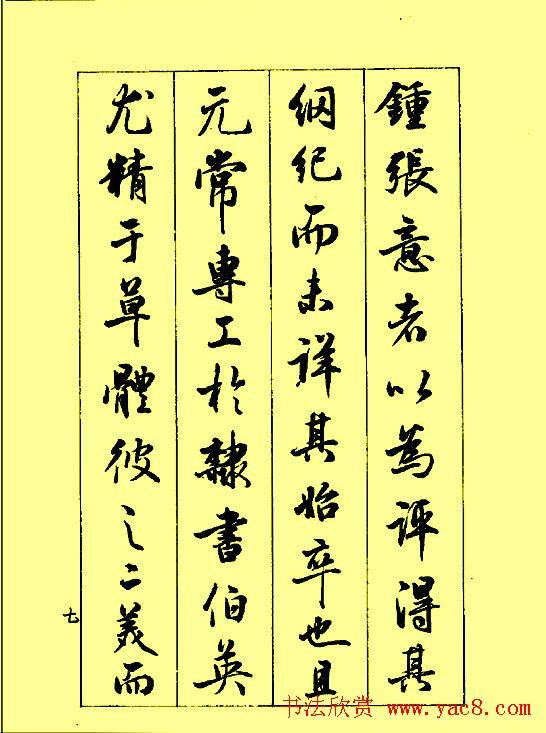 鍾張意者以為評得其
綱紀而未詳其始卒也且
元常專工於隸書伯英
尤精于草體彼之二美而
七
书法欣赏 www.yac8.com